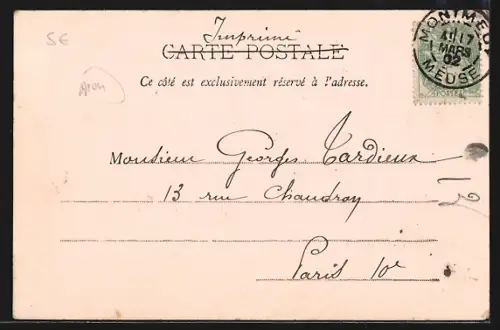 5€
Imprimé
CARTE POSTALE
Ce côté est exclusivement réservé à l'adresse.
MONTMEDY
17
MARS
02
MEUSE
POSTES
Monsieur Georges Tardieux
13 rue Chaudron
Paris 10e